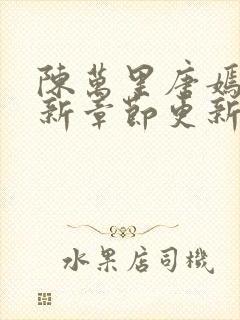 陳萬里唐嫣
新章節更新
水果店司機